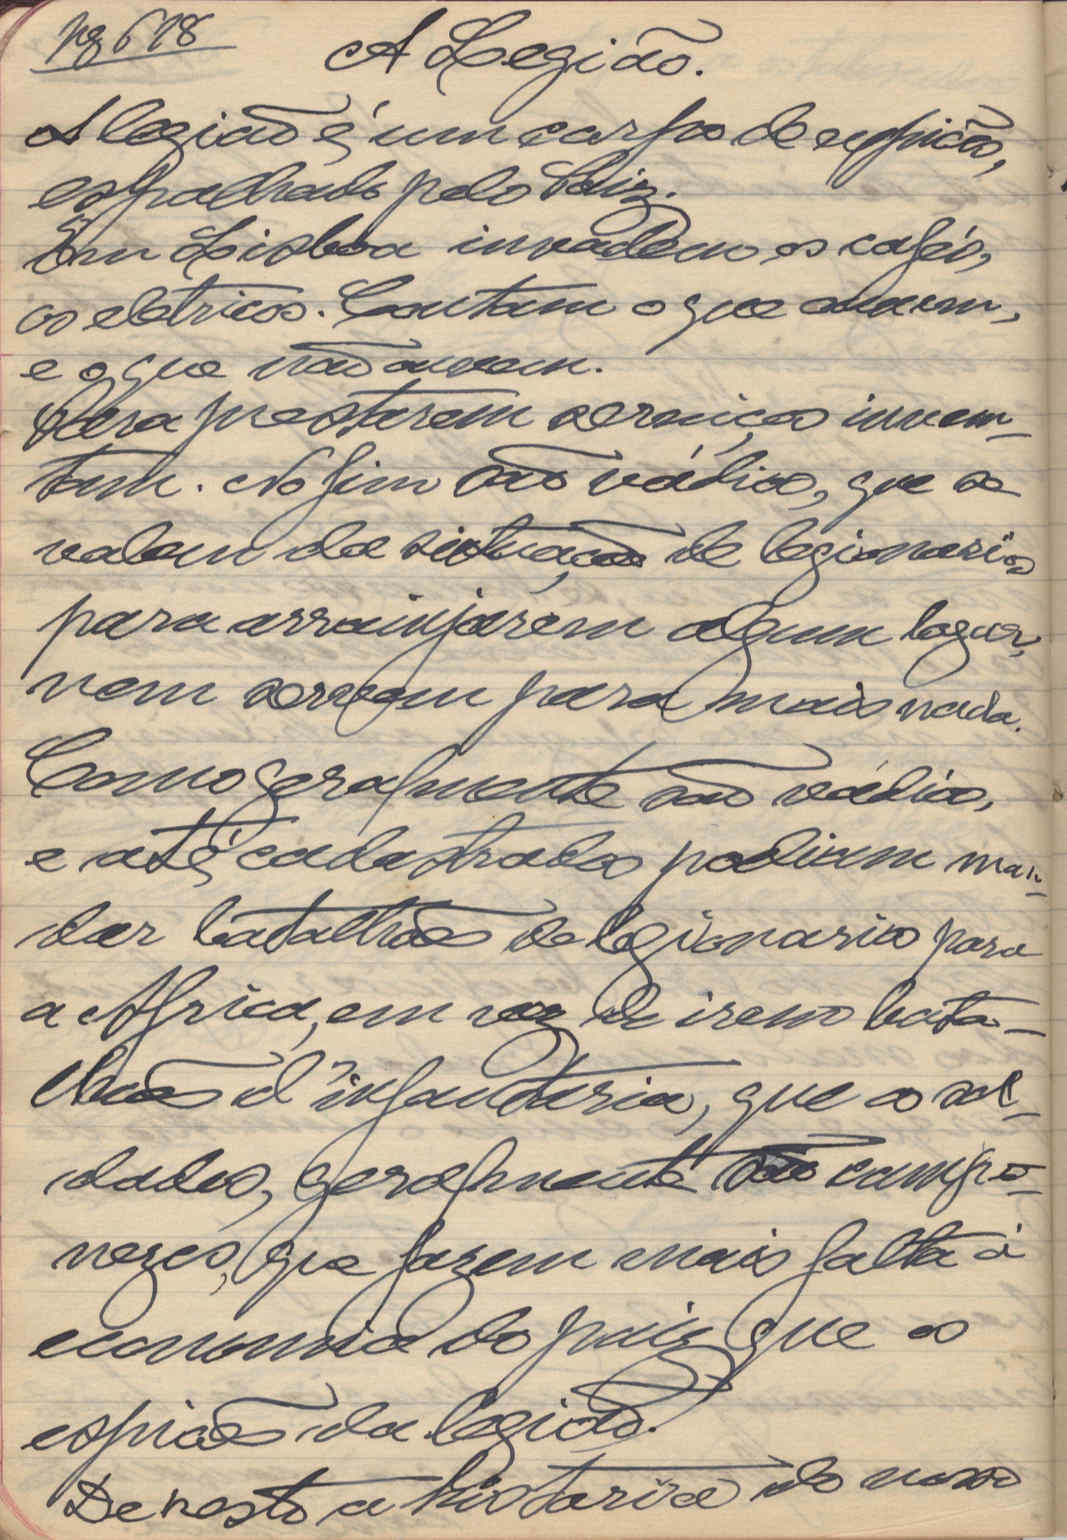 pg 678
A Legião.
A legião é um corpo de espiões,
espalhado pelo Paiz.
Em Lisboa invadem os cafés,
os eletricos. Contam o que ouvem,
e o que não ouvem.
Para prestarem serviços inven-
tam. No fim são vádios, que se
valem da situação de legionarios
para arrainjárem algum logar,
nem servem para mais nada.
Como geralmente são vádios,
e até cadastrados podiam man-
dar batalhões de legionarios para
a Africa, em vez de irem bata-
lhões d'infantaria, que os sol-
dados, geralmente são campo-
nezes, que fazem mais falta á
economia do paiz que os
espiões da legião.
De resto a historia do nosso